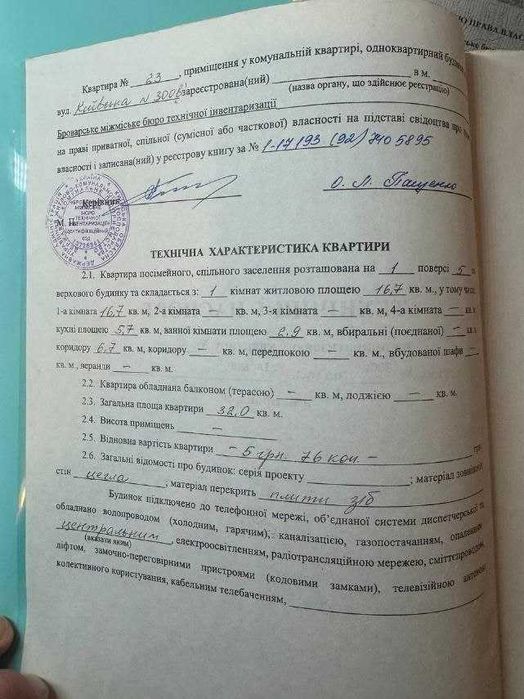 Ю ПРАВА ВЛАС
Квартира № 23, приміщення у комунальній квартирі, одноквартирний буди
вул. Київська N 300 зареєстрована(ний) в м.
(назва органу, що здійснює реєстрацію)
Броварське міжміське бюро технічної інвентаризації
на праві приватної, спільної (сумісної або часткової) власності на підставі свідоцтва про
власності і записана(ний) у реєстрову книгу за № 1-17193 (92) 7405895
Керівник О. М. Пащенко
М. П.
ТЕХНІЧНА ХАРАКТЕРИСТИКА КВАРТИРИ
2.1. Квартира посімейного, спільного заселення розташована на 1 поверсі 5
верхового будинку та складається з: 1 кімнат житловою площею 16,7 кв. м., у тому чис
1-а кімната 16,7 кв. м, 2-а кімната – кв. м, 3-я кімната – кв. м, 4-а кімната – кв.
кухні площею 5,7 кв. м, ванної кімнати площею 2,9 кв. м, вбиральні (поєднаної) – кв.
коридору 6.7 кв. м, коридору – кв. м, передпокою – кв. м., вбудованої шафи –
кв. м., веранди – кв. м.
2.2. Квартира обладнана балконом (терасою) – кв. м, лоджією – кв. м.
2.3. Загальна площа квартири 32,0 кв. м.
2.4. Висота приміщень –
2.5. Відновна вартість квартири – 5 грн. 76 коп – грн.
2.6. Загальні відомості про будинок: серія проекту ; матеріал зовніш
стін цегла, матеріал перекрить плити з/б
Будинок підключено до телефонної мережі, об'єднаної системи диспетчерської та
обладнано водопроводом (холодним, гарячим), каналізацією, газопостачанням, опаленням
центральним, електроосвітленням, радіотрансляційною мережею, сміттєпроводом,
(вказати яким)
ліфтом, замочно-переговорними пристроями (кодовими замками), телевізійною антеною
колективного користування, кабельним телебаченням,